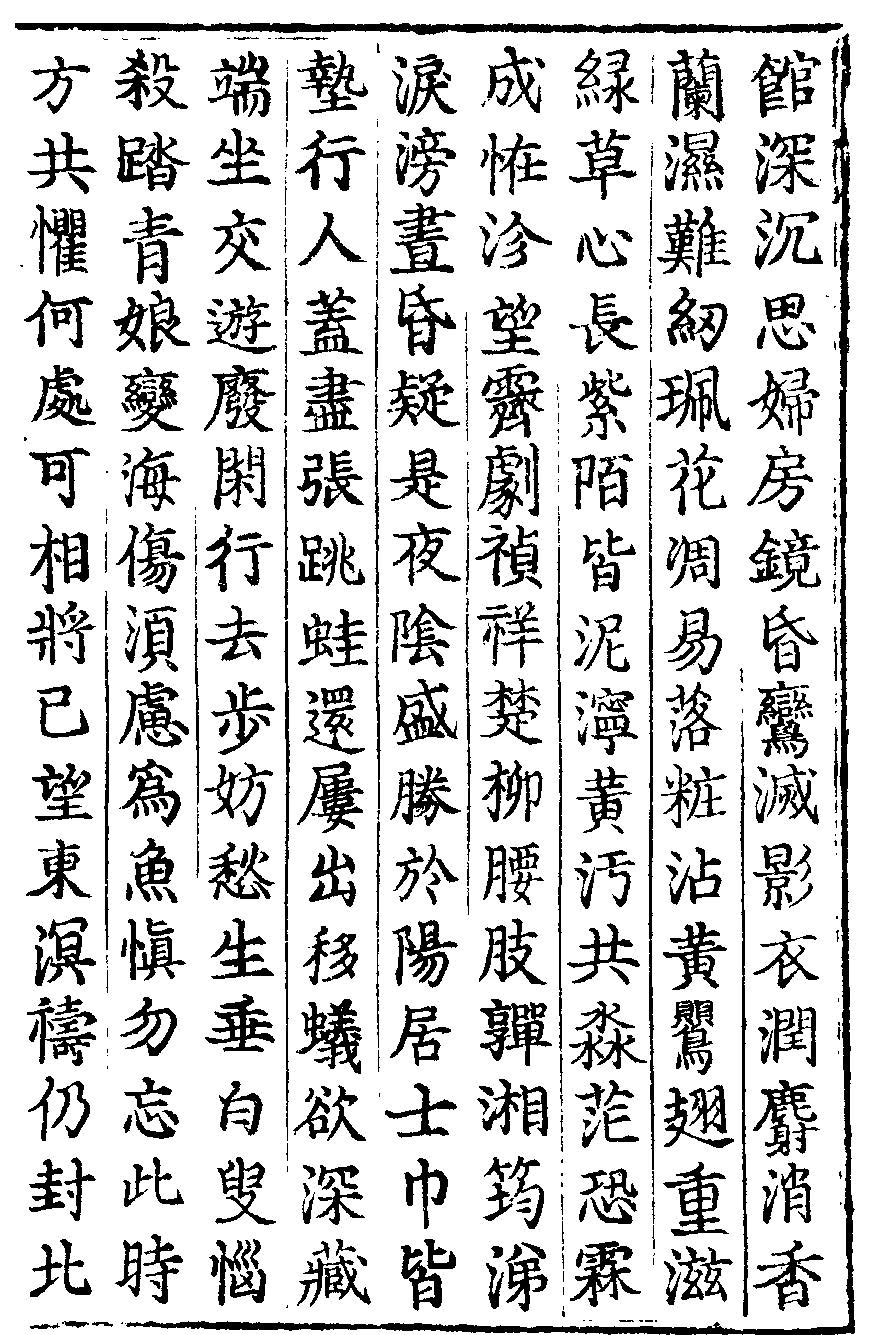 館深沉思婦房鏡昏鸞滅影衣潤麝消香
蘭濕難紉珮花凋易落粧沾黄鸎翅重滋
緑草心長紫陌皆泥濘黄汚共淼茫恐霖
成恠沴望霽劇禎祥楚柳腰肢嚲湘筠涕
淚滂晝昏疑是夜陰盛勝於陽居士巾皆
墊行人蓋盡張跳蛙還屢出移蟻欲深藏
端坐交遊廢閑行去步妨愁生垂白叟惱
殺踏青娘變海傷湏慮爲魚愼勿忘此時
方共懼何處可相將已望東溟禱仍封北